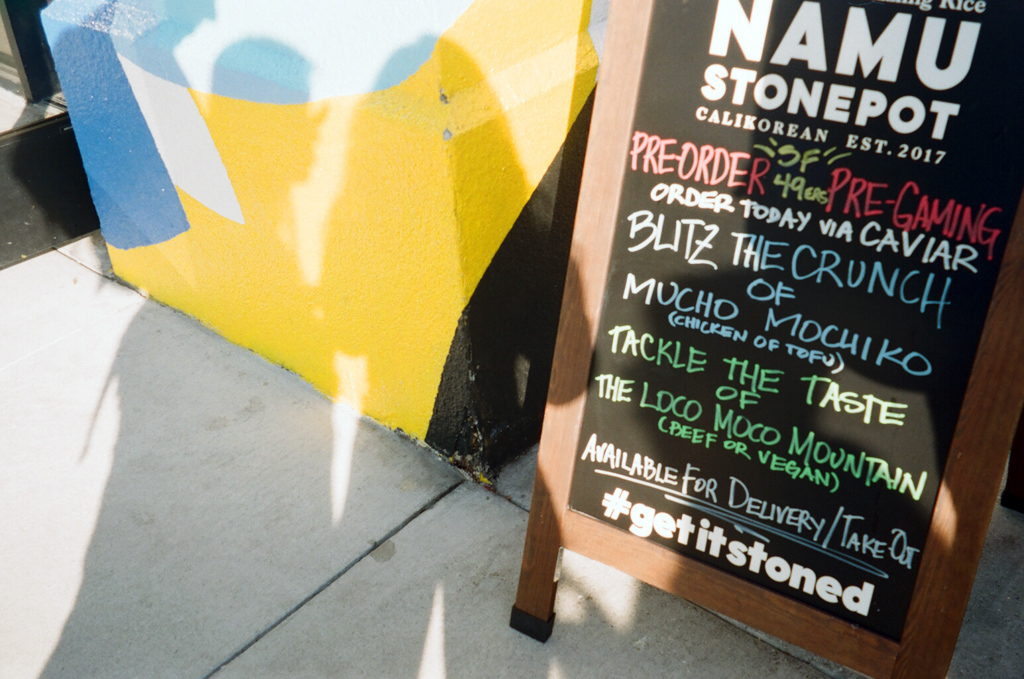 Rice
NAMU
STONEPOT
CALIKOREAN EST. 2017
PRE-ORDER SF 49ERS PRE-GAMING
ORDER TODAY VIA CAVIAR
BLITZ THE CRUNCH
OF
MUCHO MOCHIKO
(CHICKEN OF TOFU)
TACKLE THE TASTE
OF
THE LOCO MOCO MOUNTAIN
(BEEF OR VEGAN)
AVAILABLE FOR DELIVERY/TAKE OUT
#getitstoned